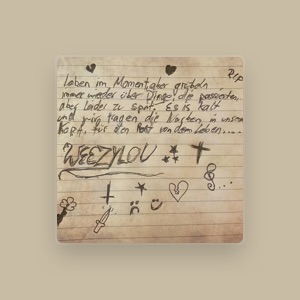 Rip
Leben im Moment aber grübeln
immer wieder über Dinge, die passierten,
aber leider zu spät. Es is kalt
und wir tragen die Narben in unserm
Kopf, für den Rest von dem Leben....
WEEZYLOU